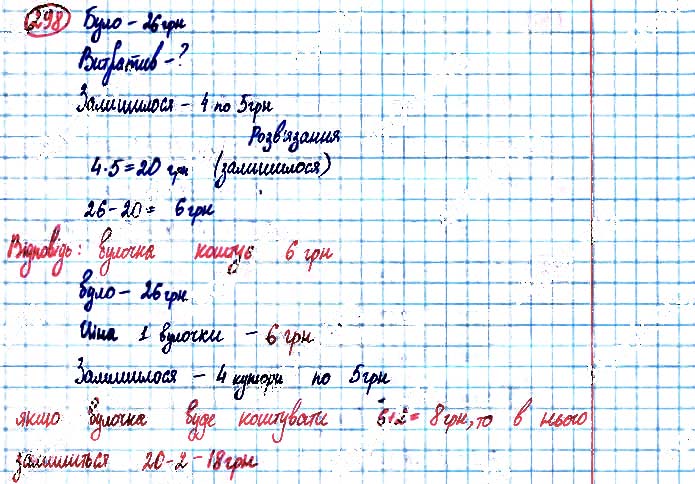 298 Було - 26 грн
Витратив - ?
Залишилося - 4 по 5 грн
Розв'язання
4·5=20 грн (залишилося)
26-20= 6 грн
Відповідь: булочка коштує 6 грн
Було - 26 грн
Ціна 1 булочки - 6 грн
Залишилося - 4 купюри по 5 грн
якщо булочка буде коштувати 6+2= 8 грн, то в нього
залишиться 20-2-18 грн